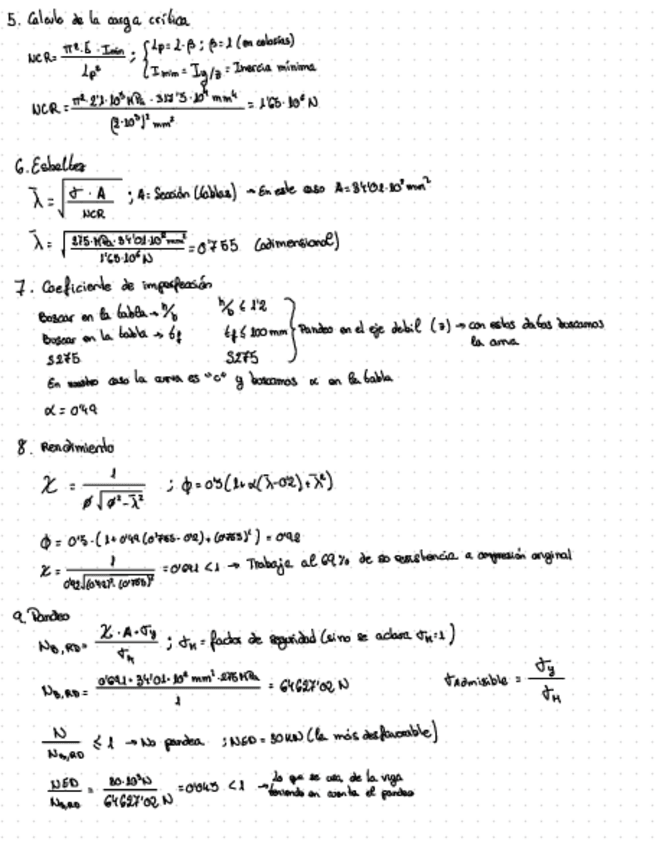 5. Calculo de la carga crítica
NCR = π²·E·Imin / Lp² ; { Lp = L·β ; β = 1 (en celosías)
Imin = Iy/z = Inercia mínima
NCR = π²·2'1·10⁵ MPa · 317'5·10⁴ mm⁴ / (2·10³)² mm² = 1'65·10⁶ N
6. Esbeltez
λ̄ = √(σ·A / NCR) ; A = Sección (tablas) → En este caso A = 34'01·10² mm²
λ̄ = √(275 MPa · 34'01·10² mm² / 1'65·10⁶ N) = 0'755 (adimensional)
7. Coeficiente de imperfección
Buscar en la tabla → h/b h/b ≤ 1'2
Buscar en la tabla → tf tf ≤ 100 mm } Pandeo en el eje debil (z) → con estos datos buscamos la curva
S275 S275
En nuestro caso la curva es "c" y buscamos α en la tabla
α = 0'49
8. Rendimiento
χ = 1 / ϕ√(ϕ² - λ̄²) ; ϕ = 0'5 (1 + α(λ̄ - 0'2) + λ̄²)
ϕ = 0'5 · (1 + 0'49 (0'755 - 0'2) + (0'755)²) = 0'92
χ = 1 / = 0'691 < 1 → Trabaja al 69% de su resistencia a compresión original
9. Pandeo
Nb,RD = χ·A·σy / σM ; σM = factor de seguridad (si no se aclara σM = 1)
Nb,RD = 0'691 · 34'01·10² mm² · 275 MPa / 1 = 64627'02 N σadmisible = σy / σM
N / Nb,RD ≤ 1 → No pandea ; NED = 30 KN (la más desfavorable)
NED / Nb,RD = / 64627'02 N = 0'043 < 1 → lo que se usa de la viga
teniendo en cuenta el pandeo